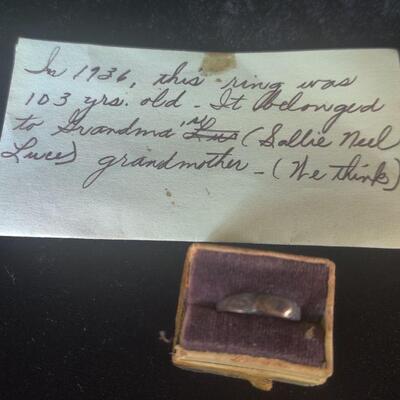 In 1936, this ring was
103 yrs. old - It belonged
to Grandma's (Sallie Neel
Luce) grandmother - (We think)